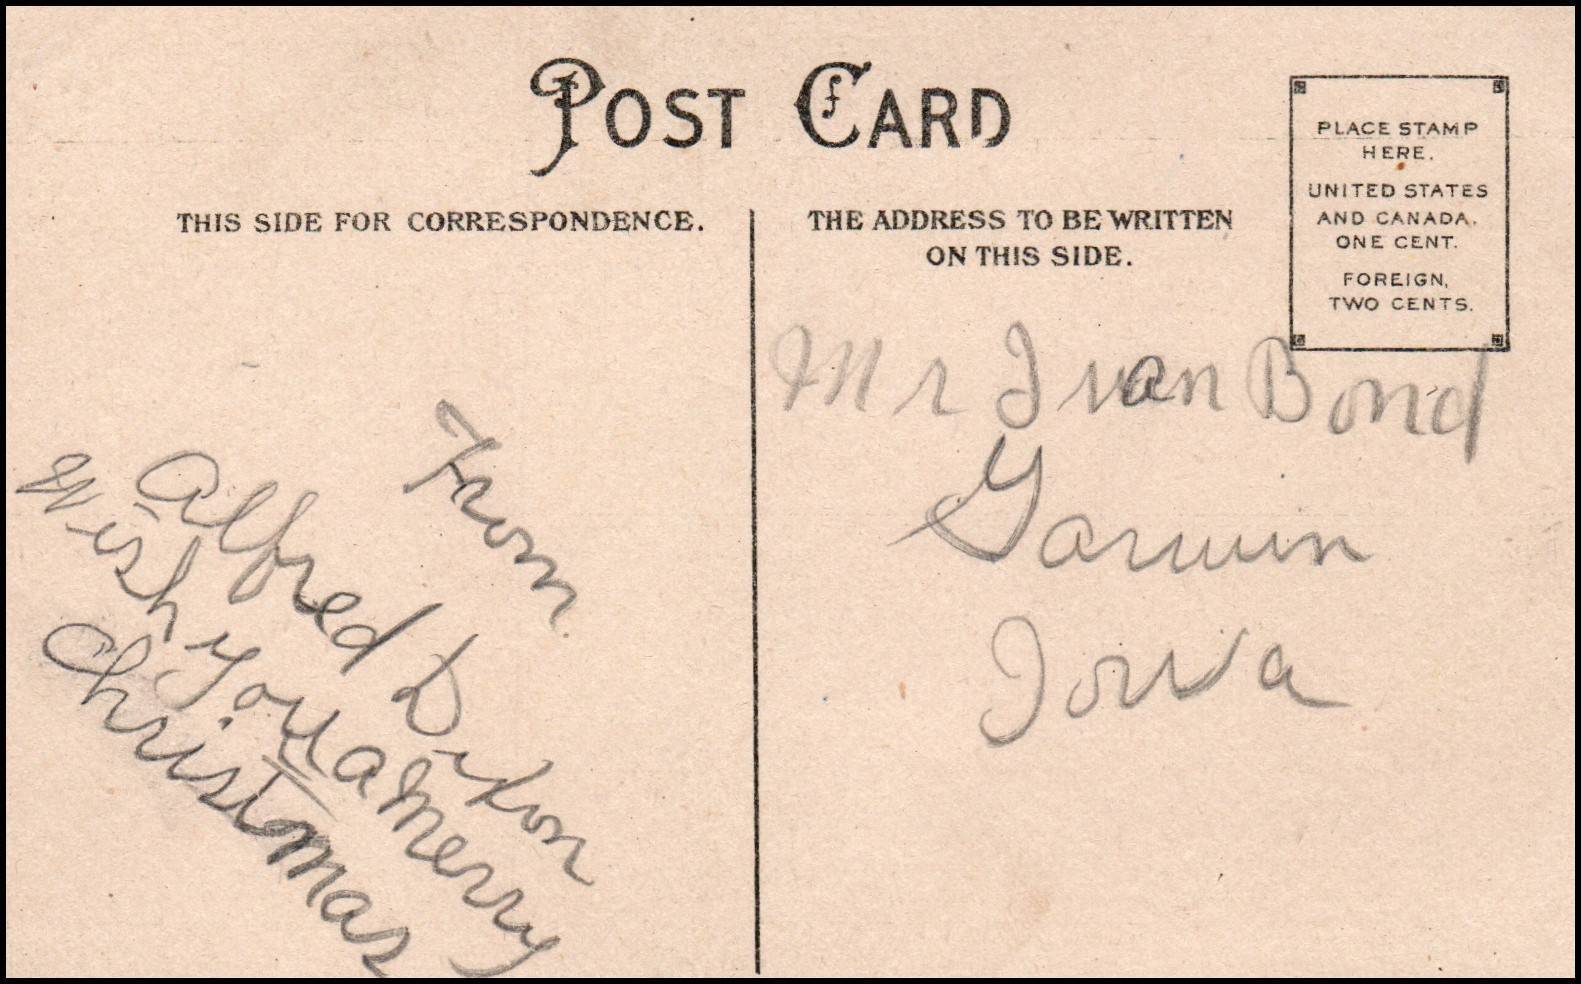 POST CARD
THIS SIDE FOR CORRESPONDENCE.
From
Alfred Dixon
Wish you a merry
Christmas
THE ADDRESS TO BE WRITTEN
ON THIS SIDE.
PLACE STAMP
HERE.
UNITED STATES
AND CANADA.
ONE CENT.
FOREIGN,
TWO CENTS.
Mr Ivan Bond
Garwin
Iowa